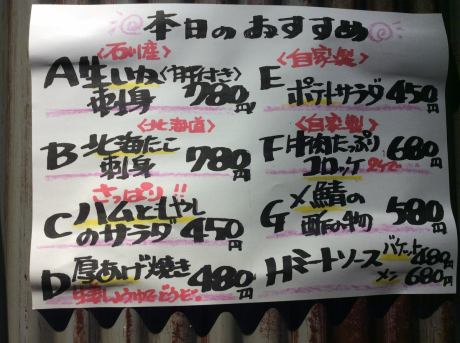 本日のおすすめ
<石川産>
A生いか<肝付き>
刺身 780円
<北海道>
B北海たこ
刺身 780円
さっぱり!!
Cハムともやし
のサラダ 450円
D厚あげ焼き 480円
生姜しょうゆでどうぞ。
<自家製>
E
ポテトサラダ 450円
<自家製>
F牛肉たっぷり 680円
コロッケ 2ケで
G〆鯖の
酢の物 580円
Hミートソース バケット480円
メン680円